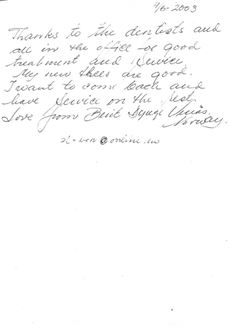 1/6-2003
Thanks to the dentists and
all in the office - of good
treatment and service
My new thees are good.
I want to come back and
have service on the
Love from Berit
Norway.